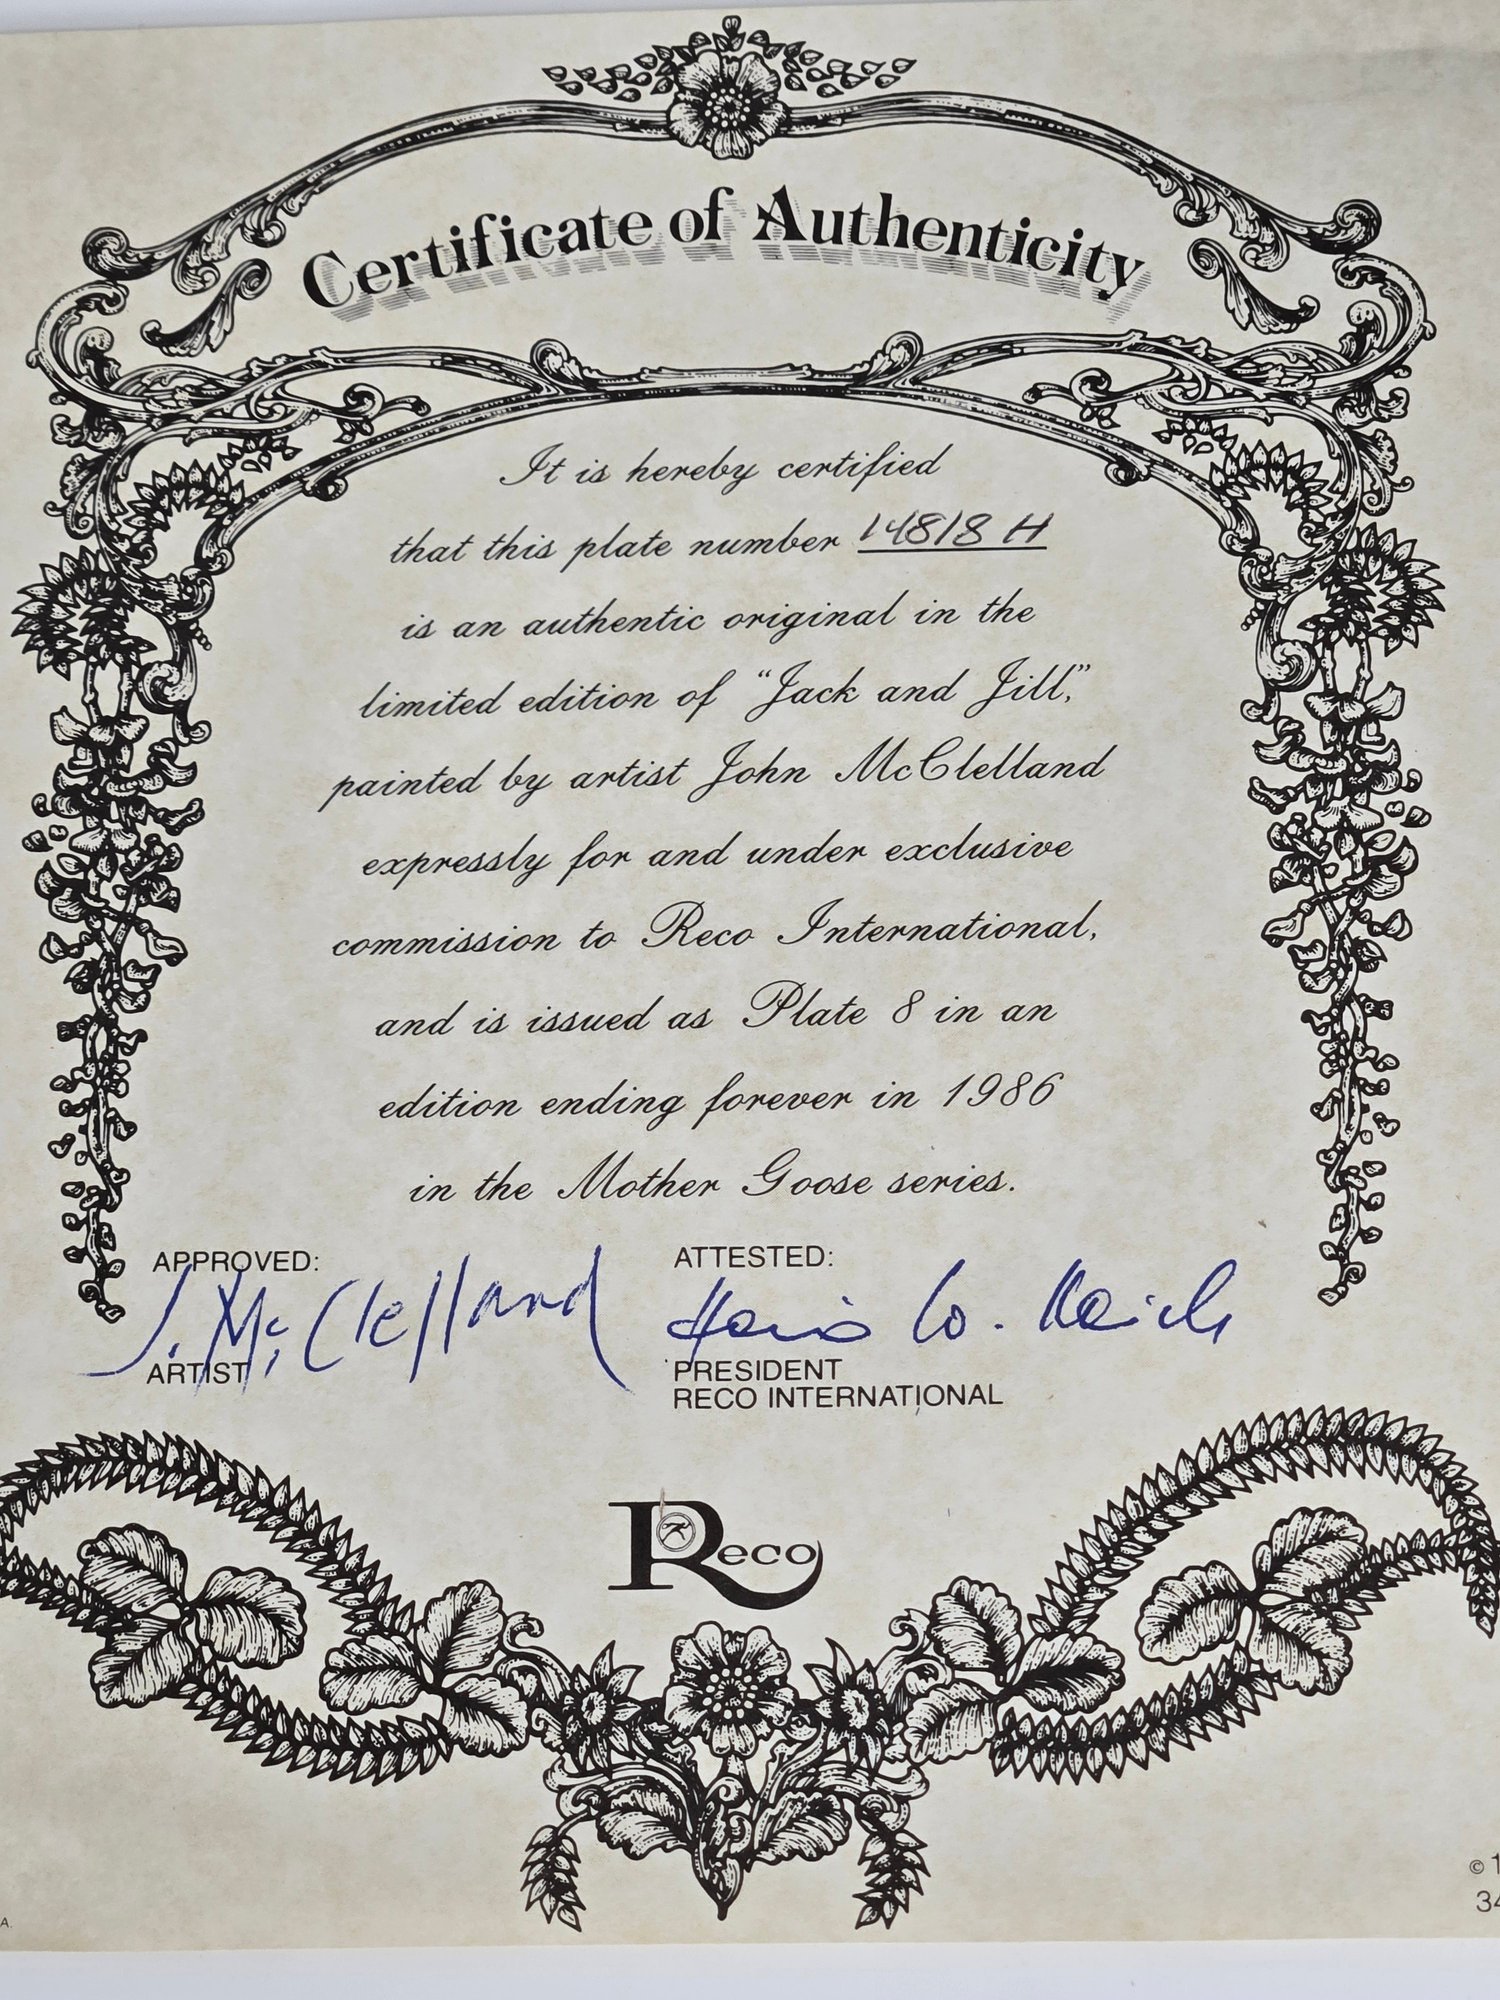 Certificate of Authenticity
It is hereby certified
that this plate number 14818 H
is an authentic original in the
limited edition of “Jack and Jill,”
painted by artist John McClelland
expressly for and under exclusive
commission to Reco International,
and is issued as Plate 8 in an
edition ending forever in 1986
in the Mother Goose series.
APPROVED: ATTESTED:
J. McClelland
ARTIST PRESIDENT
RECO INTERNATIONAL
Reco
© 1
34
A.